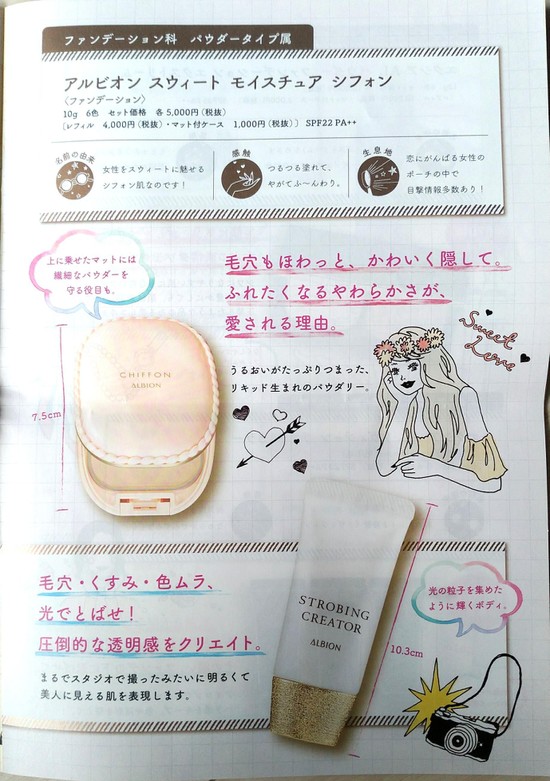 ファンデーション科 パウダータイプ属
アルビオン スウィート モイスチュア シフォン
〈ファンデーション〉
10g 6色 セット価格 各5,000円（税抜）
〔レフィル 4,000円（税抜）・マット付ケース 1,000円（税抜）〕 SPF22 PA++
名前の由来
女性をスウィートに魅せる
シフォン肌なのです！
感触
つるつる塗れて、
やがてふ〜んわり。
生息地
恋にがんばる女性の
ポーチの中で
目撃情報多数あり！
上に乗せたマットには
繊細なパウダーを
守る役目も。
毛穴もほわっと、かわいく隠して。
ふれたくなるやわらかさが、
愛される理由。
Sweet
Love
うるおいがたっぷりつまった、
リキッド生まれのパウダリー。
CHIFFON
ALBION
7.5cm
毛穴・くすみ・色ムラ、
光でとばせ！
圧倒的な透明感をクリエイト。
まるでスタジオで撮ったみたいに明るくて
美人に見える肌を表現します。
STROBING
CREATOR
ALBION
10.3cm
光の粒子を集めた
ように輝くボディ。